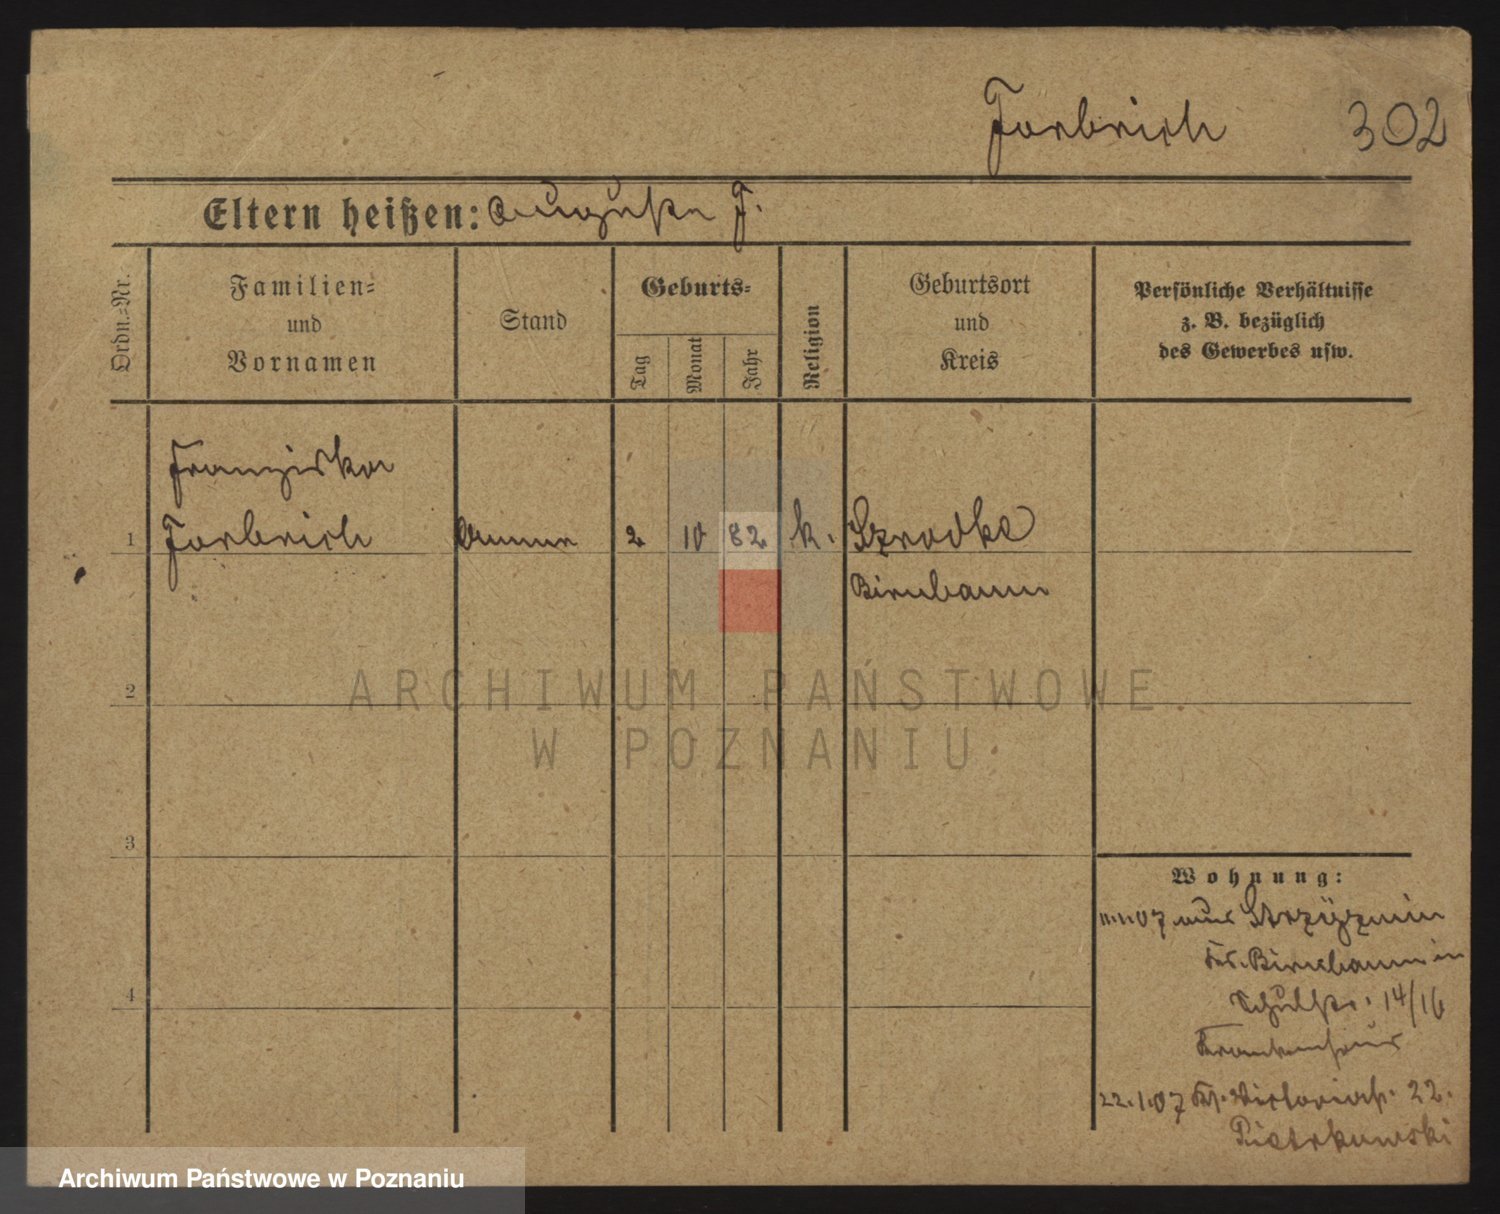 Forbrich 302
Eltern heißen: Auguste F.
Ordn.-Nr.
Familien-
und
Vornamen
Stand
Geburts-
Tag
Monat
Jahr
Religion
Geburtsort
und
Kreis
Persönliche Verhältnisse
z. B. bezüglich
des Gewerbes usw.
Franziska
1 Forbrich Amme 2 10 82 k. Szrodke
Birnbaum
2
ARCHIWUM PAŃSTWOWE
W POZNANIU
3
4
Wohnung:
11.1.07 aus Strzyzmin
Krs. Birnbaum in
Schulstr. 14/16
Krankenhaus
22.1.07 Victoriastr. 22.
Piotrkowski
Archiwum Państwowe w Poznaniu